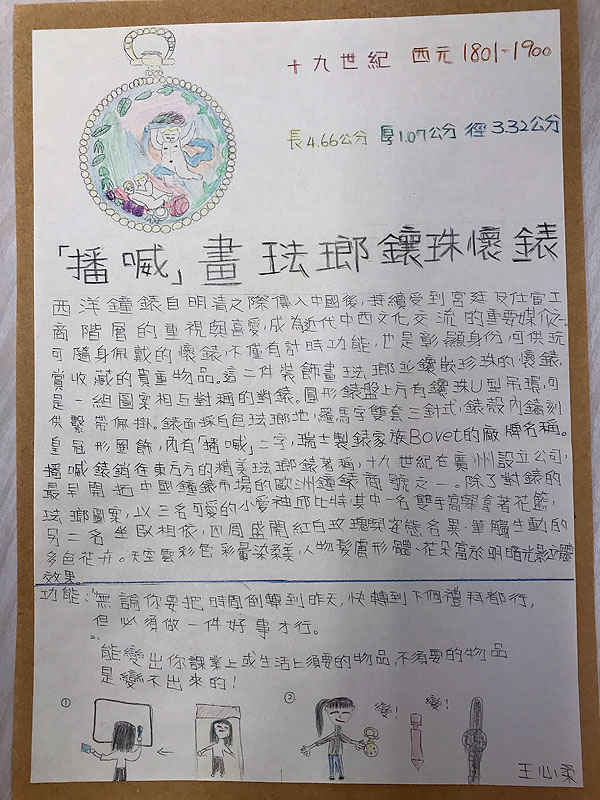 十九世紀 西元1801-1900
長4.66公分 厚1.07公分 徑3.32公分
「播喊」畫琺瑯鑲珠懷錶
西洋鐘錶自明清之際傳入中國後,持續受到宮廷及仕宦工
商階層的重視與喜愛,成為近代中西文化交流的重要媒介。
可隨身佩戴的懷錶,不僅有計時功能,也是彰顯身份,可供玩
賞收藏的貴重物品。這二件裝飾畫琺瑯並鑲嵌珍珠的懷錶,
是一組圖案相互對稱的對錶。圓形錶盤上方有鑲珠U型吊環,可
供繫帶佩掛。錶面採白色琺瑯地,羅馬字雙套三針式,錶殼內鐫刻
皇冠形圖飾,內有「播喊」二字,瑞士製錶家族Bovet的廠牌名稱。
播喊錶銷往東方的精美琺瑯錶著稱,十九世紀在廣州設立公司,
最早開拓中國鐘錶市場的歐洲鐘錶商號之一。除了對錶的
琺瑯圖案,以三名可愛的小愛神邱比特,其中一名雙手高舉拿著花籃,
另二名坐臥相依,四周盛開紅白玫瑰與姿態各異、筆觸生動的
多色花卉。天空雲彩色彩暈染柔美,人物髮膚形體、花朵富於明暗光影立體
效果。
功能:1.無論你要把時間倒轉到昨天,快轉到下個禮拜都行,
但必須做一件好事才行。
2.能變出你課業上或生活上須要的物品,不須要的物品
是變不出來的!
① ← ② 變! 變!
王心柔